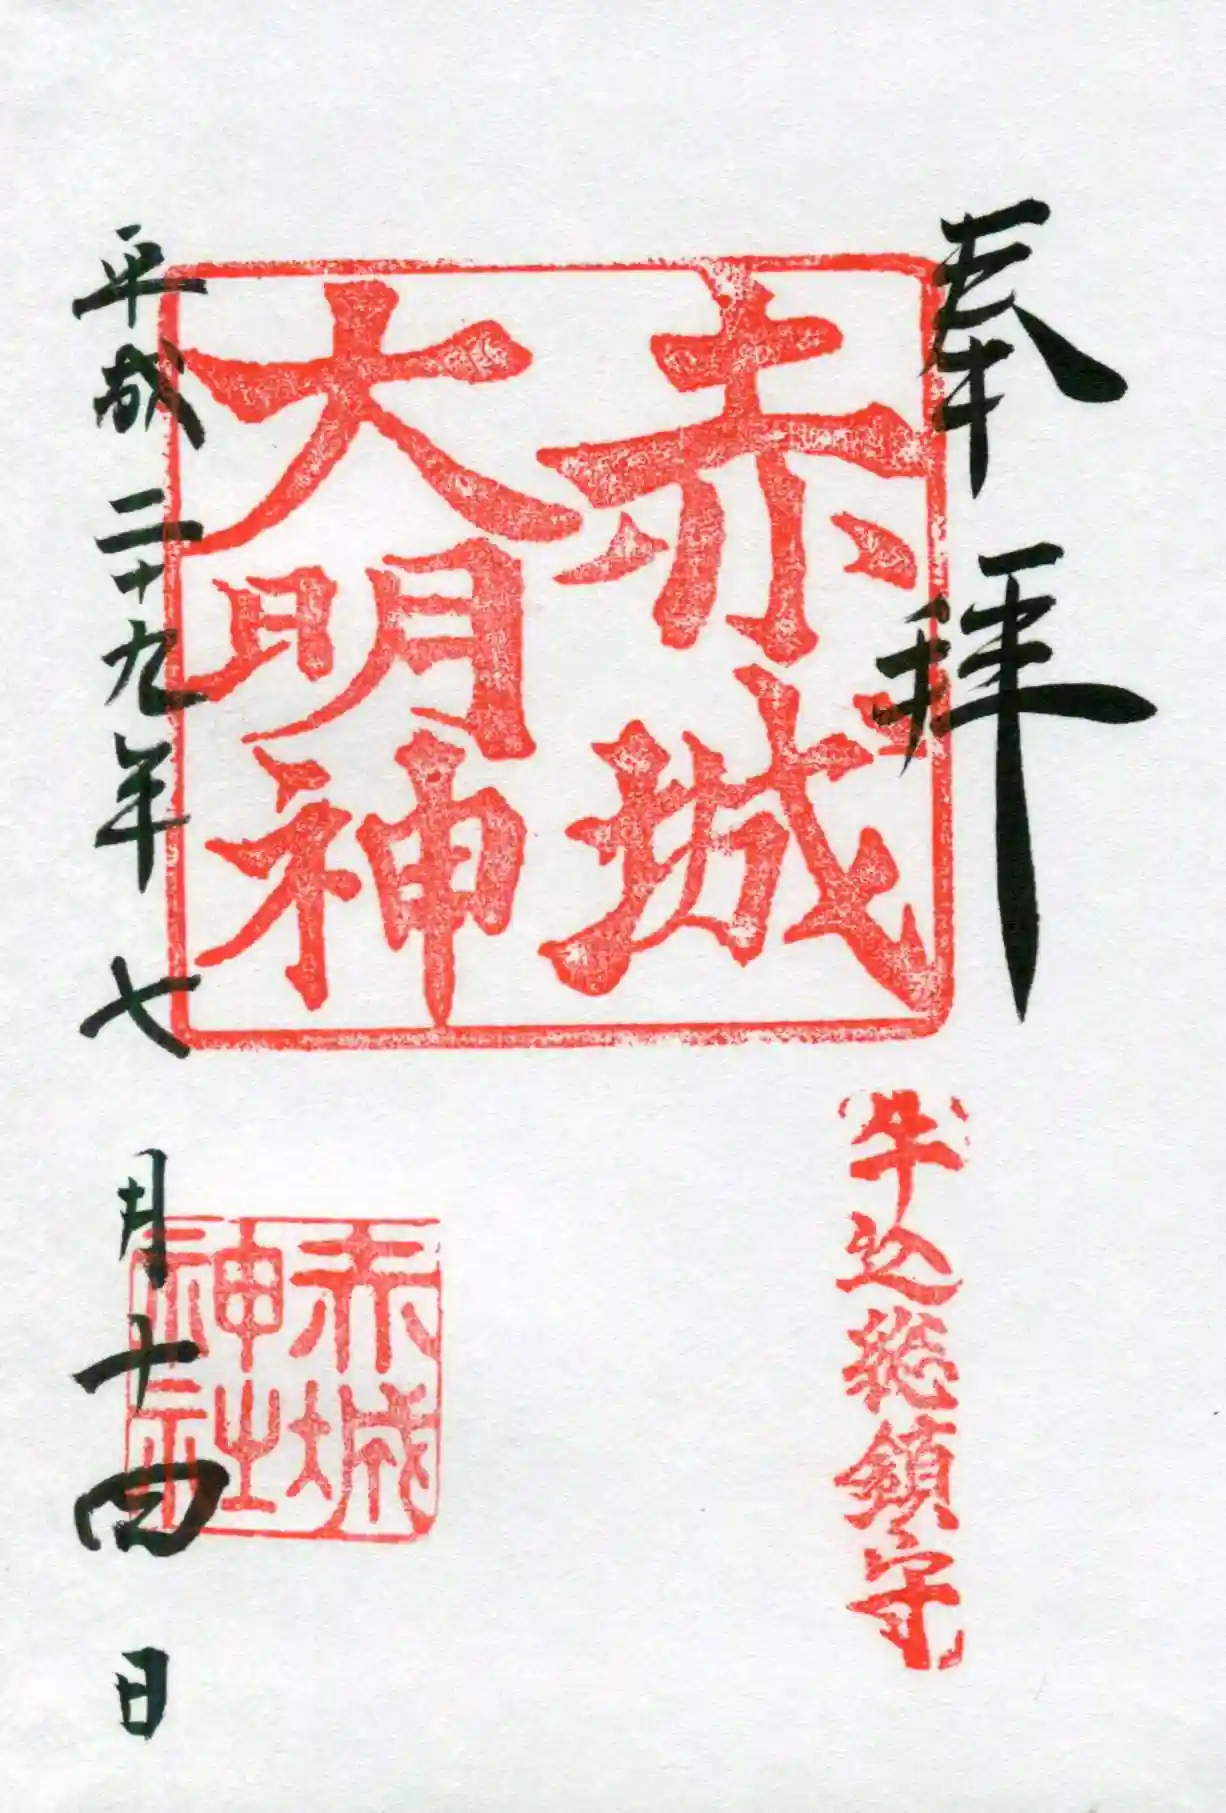 奉拝
赤城
大明神
牛込総鎮守
赤城
神社
平成二十九年七月十四日